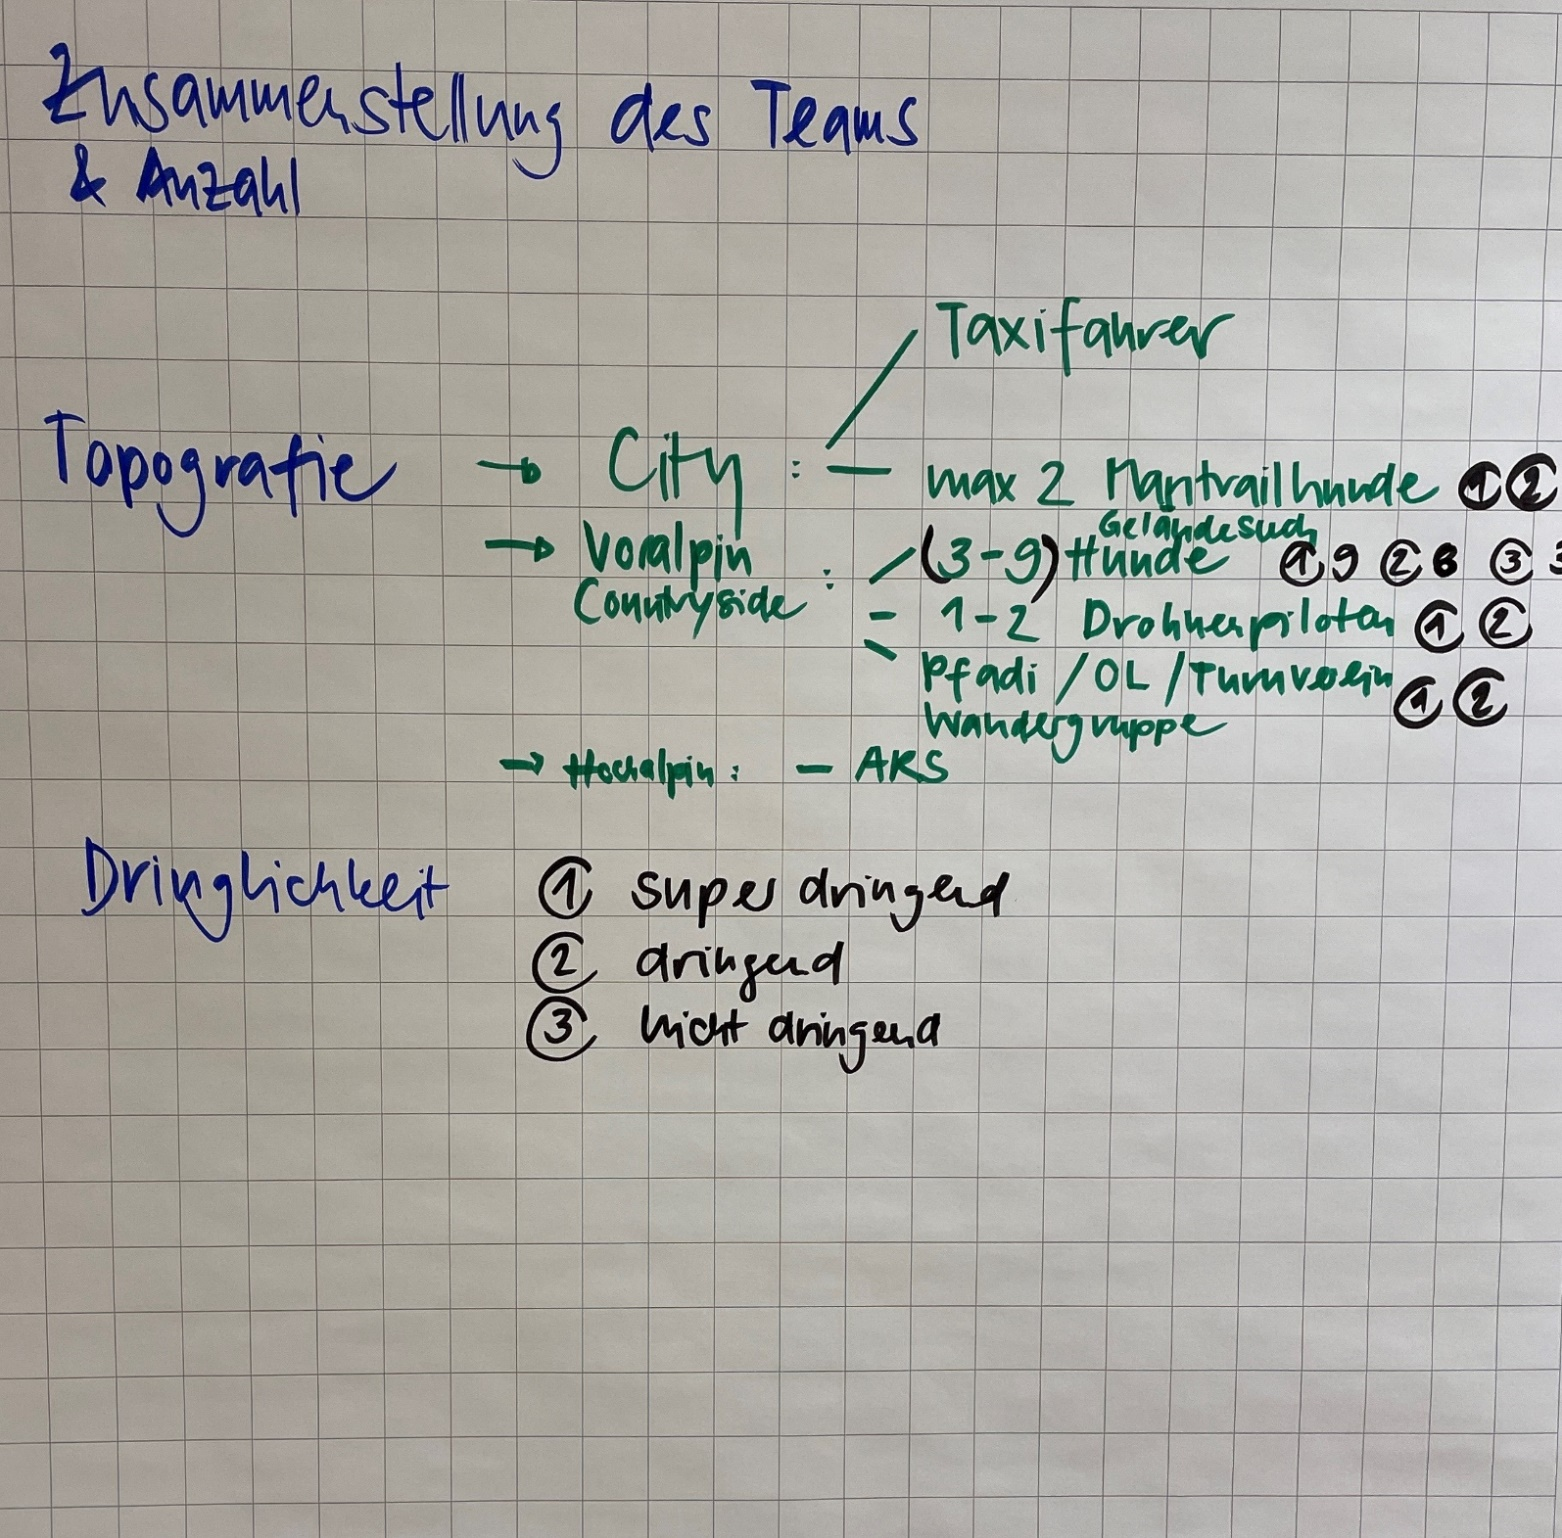 Zusammenstellung des Teams
& Anzahl
Taxifahrer
Topografie → City : — max 2 Mantrailhunde ① ②
→ Voralpin Countryside : (3-9) Geländesuch Hunde ① 9 ② 6 ③ 3
- 1-2 Drohnenpiloten ① ②
Pfadi / OL / Turnverein ① ②
Wandergruppe
→ Hochalpin : — ARS
Dringlichkeit ① super dringend
② dringend
③ nicht dringend